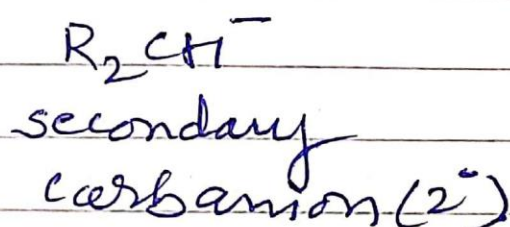 R₂CH⁻
secondary
carbanion (2°)